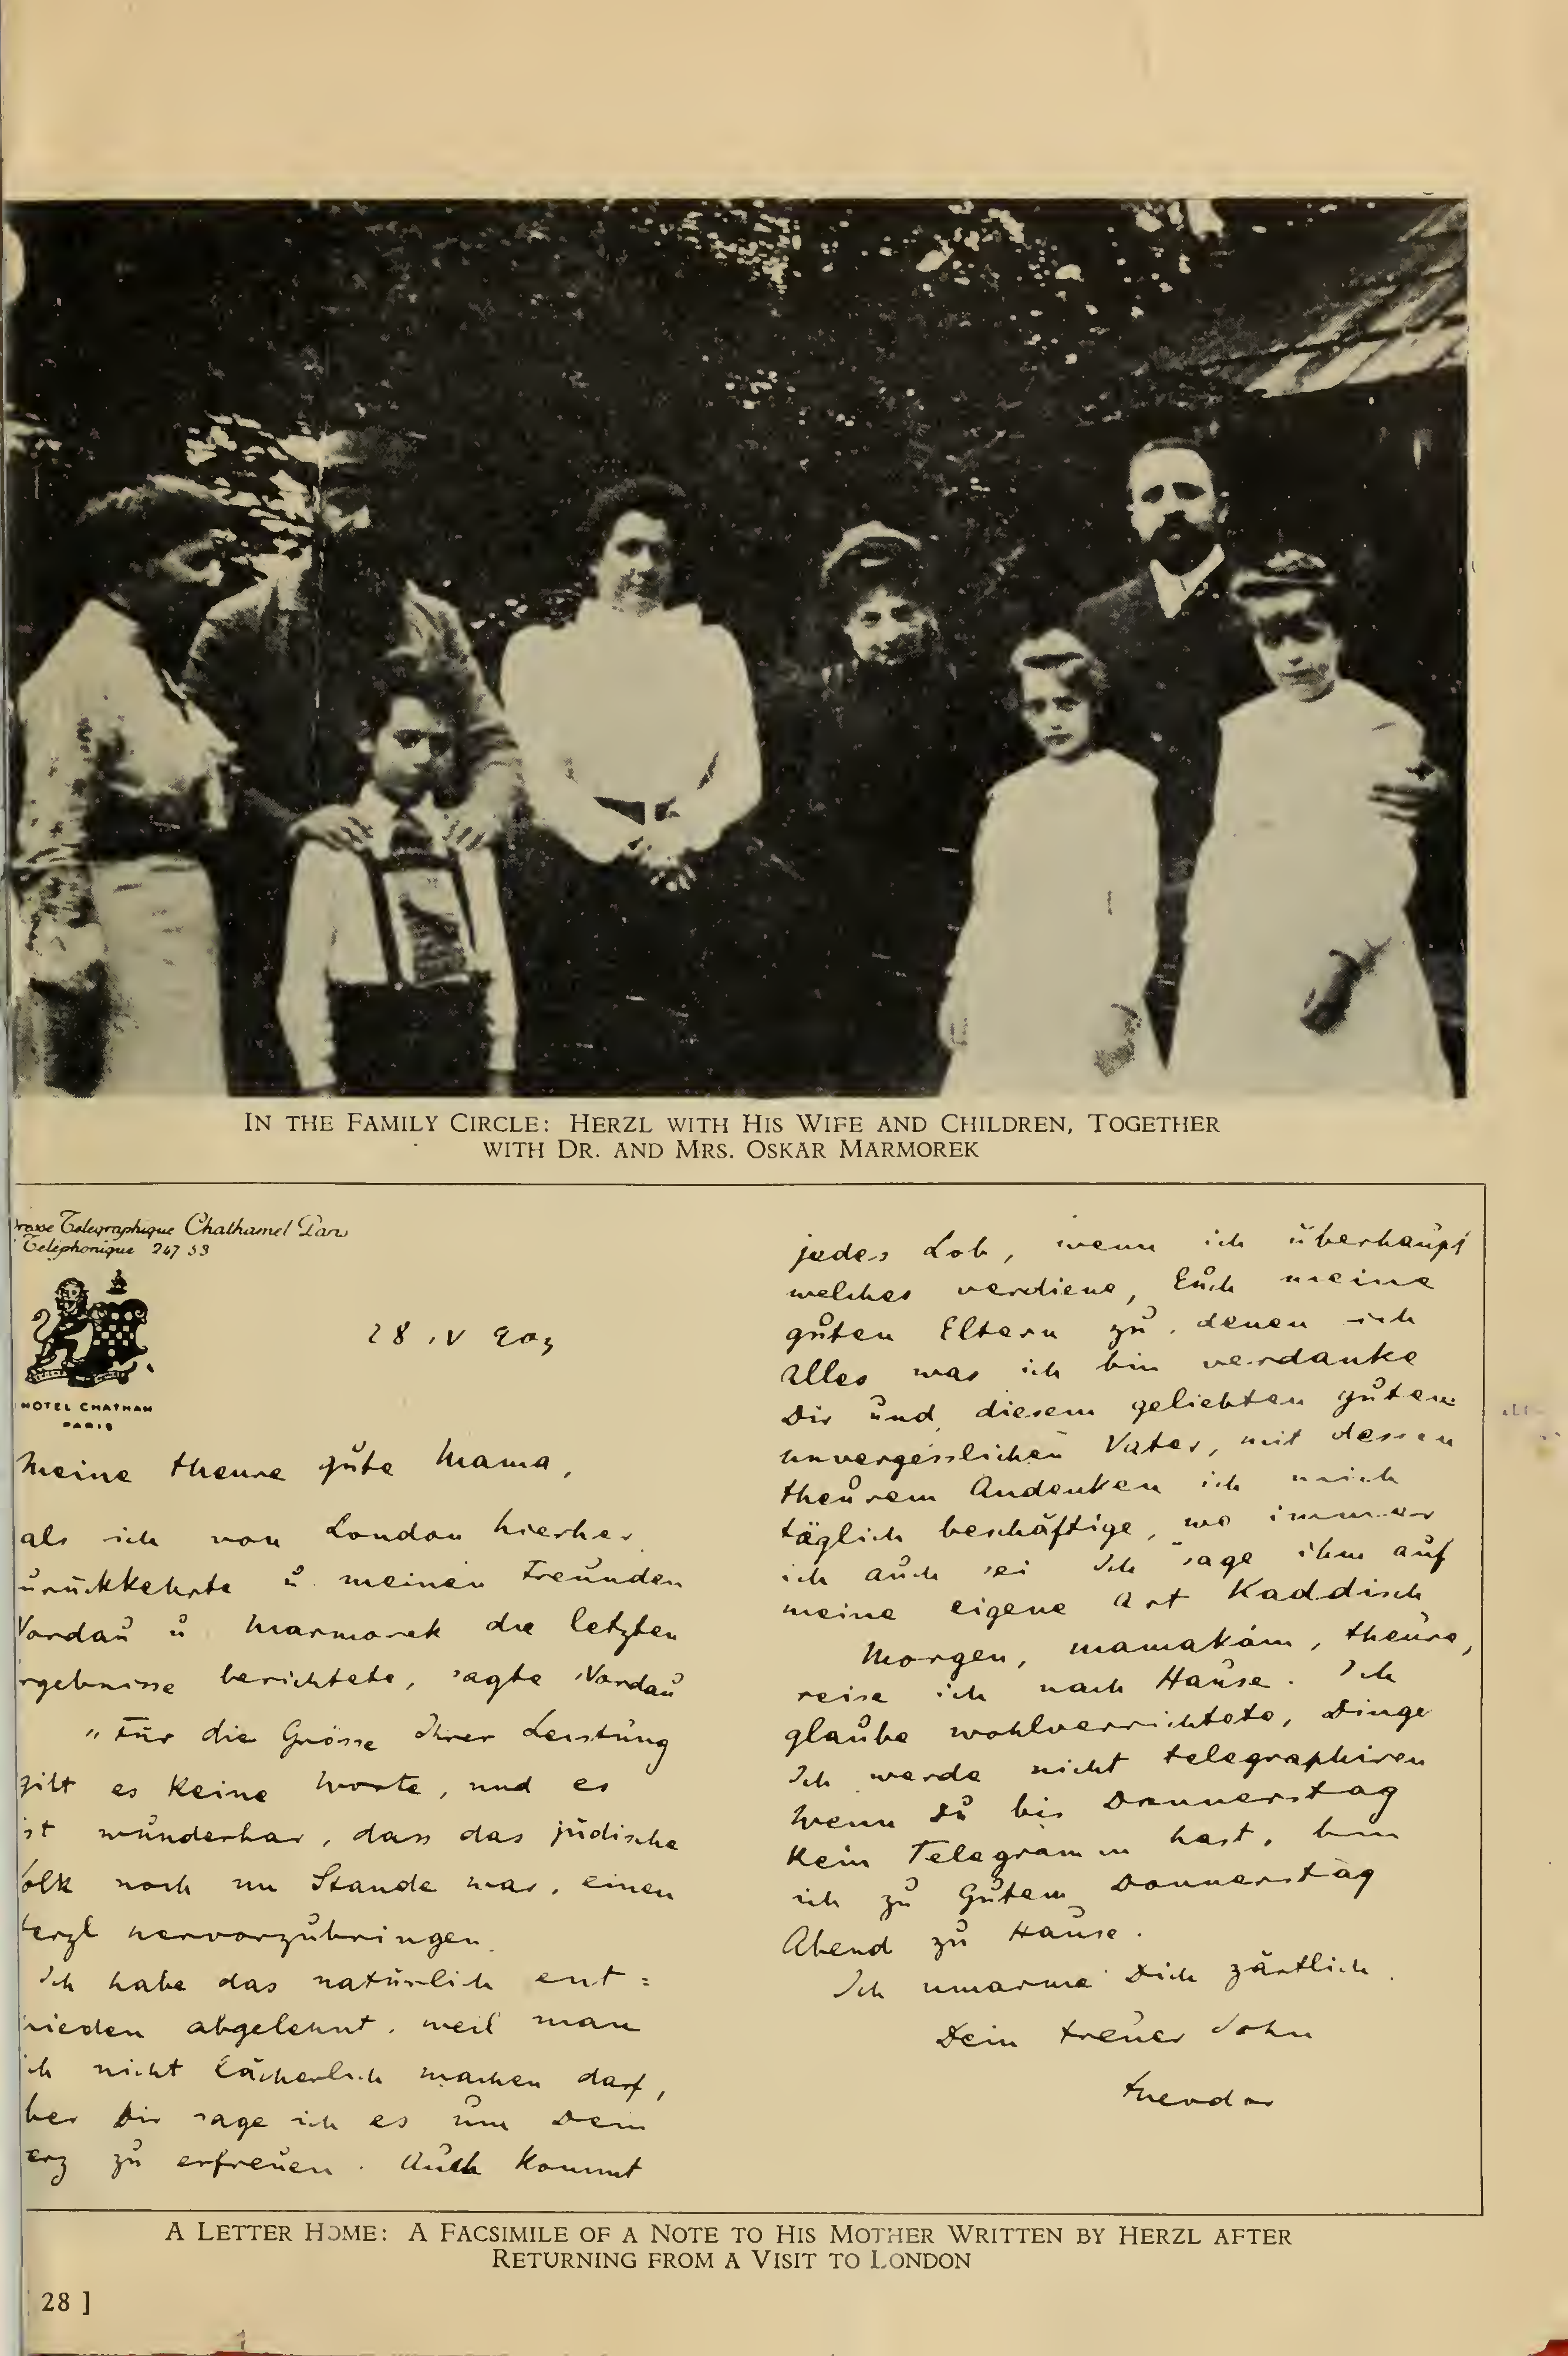 IN THE FAMILY CIRCLE: HERZL WITH HIS WIFE AND CHILDREN, TOGETHER
WITH DR. AND MRS. OSKAR MARMOREK
Telegraphique Chathamel Paris
Telephonique 247 53
HOTEL CHATHAM
PARIS
28 IV 903
Meine theure gute Mama,
als ich von London hierher
urückkehrte u. meinen Freunden
Nordau u. Marmorek die letzten
rgebnisse berichtete, sagte Nordau
"Für die Grösse Ihrer Leistung
gibt es keine Worte, und es
ist wunderbar, dass das jüdische
olk noch im Stande war, einen
erzl hervorzubringen.
Ich habe das natürlich ent=
hieden abgelehnt, weil man
ich nicht lächerlich machen darf,
ber Dir sage ich es um Dein
erz zu erfreuen. Auch kommt
jedes Lob, wenn ich überhaupt
welches verdiene, Euch meine
guten Eltern zu, denen ich
Alles was ich bin verdanke
Dir und diesem geliebten guten
unvergesslichen Vater, mit dessen
theurem Andenken ich mich
täglich beschäftige, wo immer
ich auch sei Ich sage ihm auf
meine eigene Art Kaddisch
Morgen, mamakám, theure,
reise ich nach Hause. Ich
glaube wohlverrichtete, Dinge
Ich werde nicht telegraphiren
Wenn Du bis Donnerstag
kein Telegramm hast, bin
ich zu Gutem Donnerstag
Abend zu Hause.
Ich umarme Dich zärtlich.
Dein treuer Sohn
Theodor
A LETTER HOME: A FACSIMILE OF A NOTE TO HIS MOTHER WRITTEN BY HERZL AFTER
RETURNING FROM A VISIT TO LONDON
28 ]